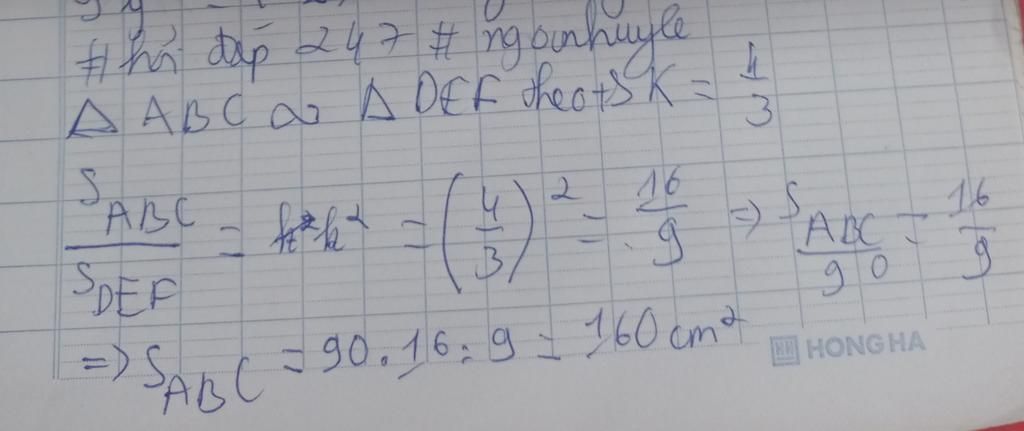 # hỏi đáp 247 # ngoinhuyle
Δ ABC ∽ Δ DEF theo tS K = 4/3
S ABC / S DEF = k² = (4/3)² = 16/9 => S ABC / 90 = 16/9
=> S ABC = 90.16:9 = 160 cm²
HONG HA